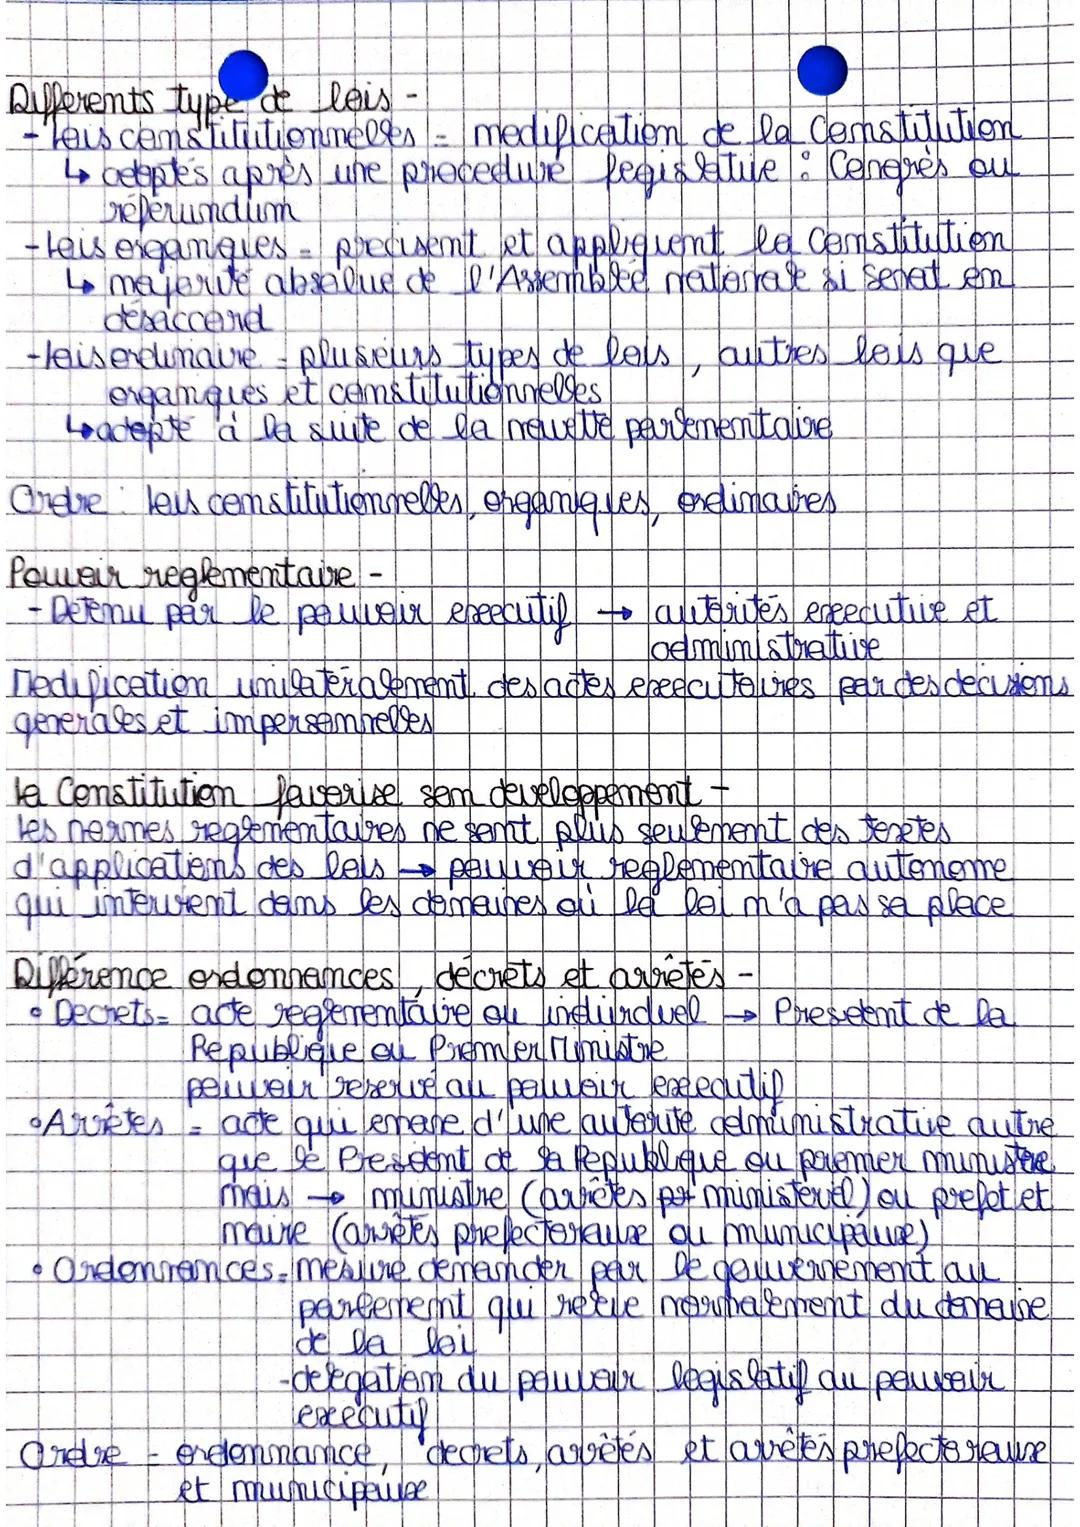 Differents type de lois -
- Lois constitutionnelles = modification de la Constitution
↳ adoptés après une procedure legislative : Congrès ou
réferundum
- Lois organiques = precisent et appliquent la Constitution
↳ majorité absolue de l'Assemblée nationale si senat en
désaccord
- lois ordinaire = plusieurs types de lois, autres lois que
organiques et constitutionnelles
↳ adopté à la suite de la navette parlementaire
Ordre : lois constitutionnelles, organiques, ordinaires
Pouvoir reglementaire -
- Détenu par le pouvoir executif → autorités executive et
administrative
Modification unilatéralement des actes executoires par des decisions
generales et impersonnelles
la Constitution favorise son developpement -
les normes reglementaires ne sont plus seulement des textes
d'applications des lois → pouvoir reglementaire autonome
qui intervient dans les domaines où la loi n'a pas sa place
Différence ordonnances, décrets et arrêtés -
• Decrets = acte reglementaire ou individuel → President de la
Republique ou Premier Ministre
pouvoir reservé au pouvoir executif
• Arrêtés = acte qui emane d'une autorité administrative autre
que le President de la Republique ou premier ministre
mais → ministre (arrêtés ministeriel) ou prefet et
maire (arrêtés prefectoraux ou municipaux)
• Ordonnances = mesure demander par le gouvernement au
parlement qui releve normalement du domaine
de la loi
- délegation du pouvoir legislatif au pouvoir
executif
Ordre = ordonnance, decrets, arrêtés et arrêtés prefectoraux
et municipaux